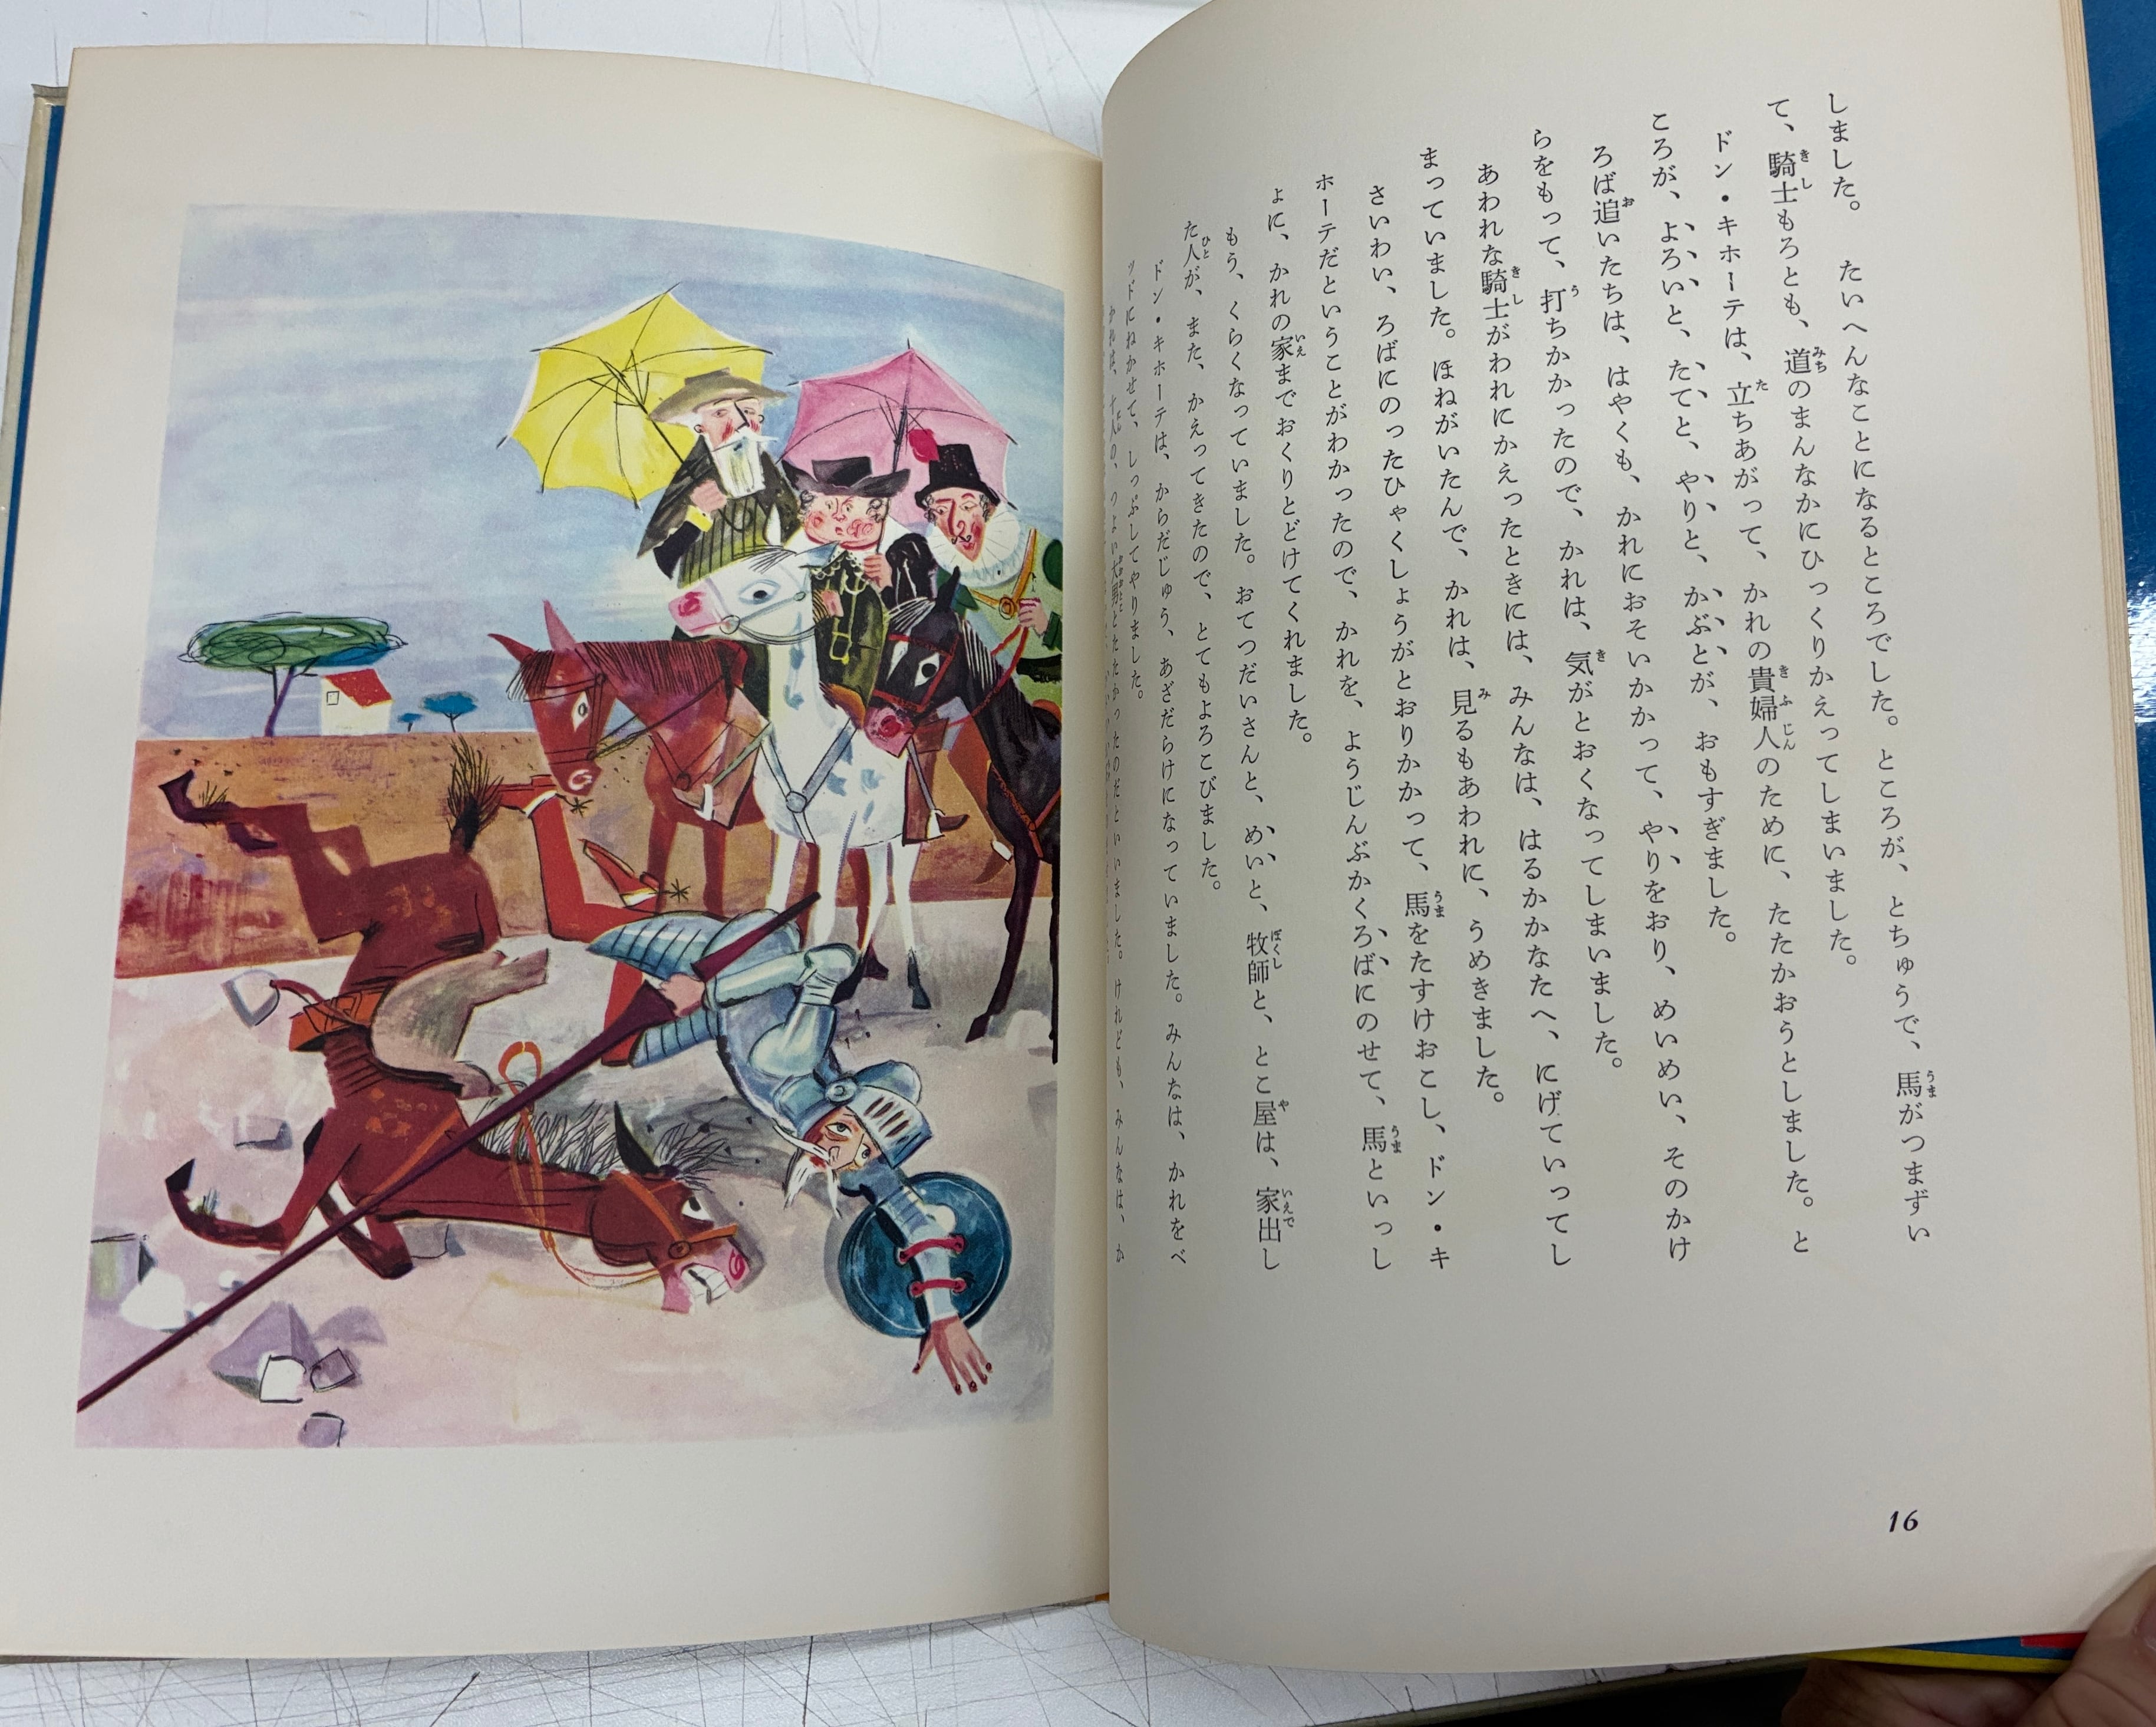 しました。　たいへんなことになるところでした。ところが、とちゅうで、馬がつまずい
て、騎士もろとも、道のまんなかにひっくりかえってしまいました。
ドン・キホーテは、立ちあがって、かれの貴婦人のために、たたかおうとしました。と
ころが、よろいと、たてと、やりと、かぶとが、おもすぎました。
ろば追いたちは、はやくも、かれにおそいかかって、やりをおり、めいめい、そのかけ
らをもって、打ちかかったので、かれは、気がとおくなってしまいました。
あわれな騎士がわれにかえったときには、みんなは、はるかかなたへ、にげていってし
まっていました。ほねがいたんで、かれは、見るもあわれに、うめきました。
さいわい、ろばにのったひゃくしょうがとおりかかって、馬をたすけおこし、ドン・キ
ホーテだということがわかったので、かれを、ようじんぶかくろばにのせて、馬といっし
ょに、かれの家までおくりとどけてくれました。
もう、くらくなっていました。おてつだいさんと、めいと、牧師と、とこ屋は、家出し
た人が、また、かえってきたので、とてもよろこびました。
ドン・キホーテは、からだじゅう、あざだらけになっていました。みんなは、かれをベ
ッドにねかせて、しっぷしてやりました。
かれは、十人の、つよい大男とたたかったのだといいました。けれども、みんなは、か
16